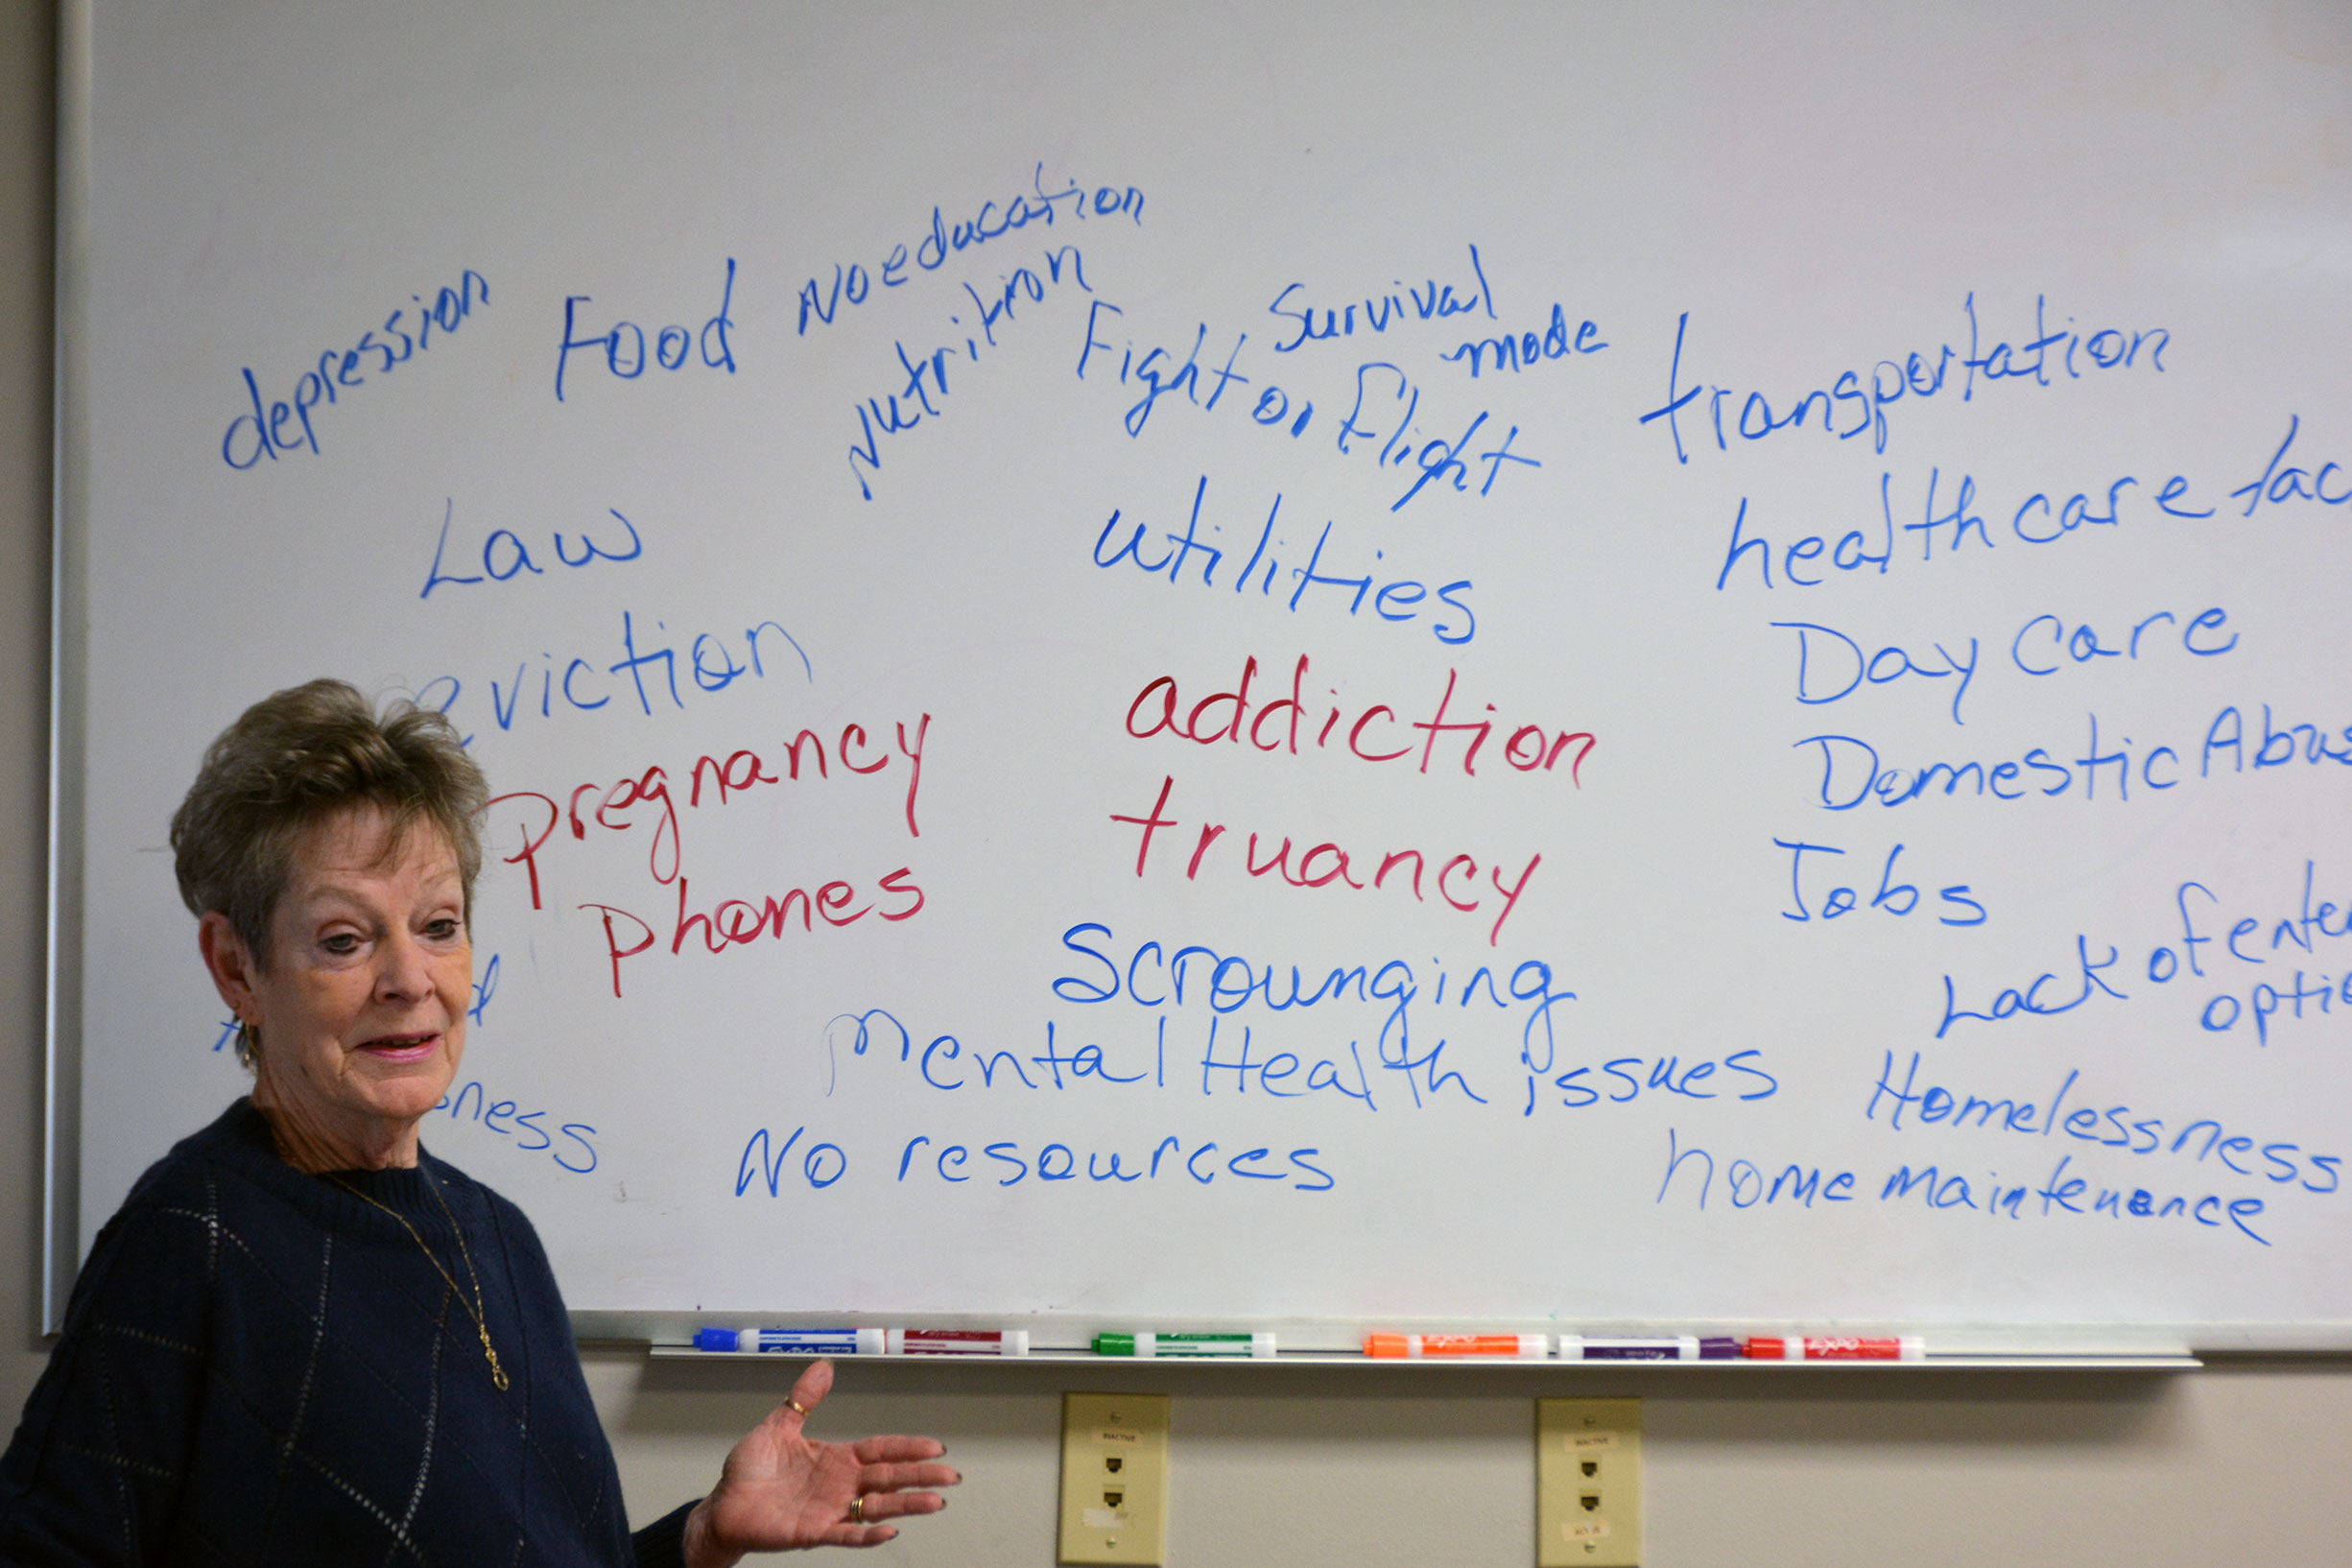 depression
Food
No education
nutrition
Survival
mode
Fight or Flight
transportation
Law
utilities
healthcare fac
eviction
Day Care
Pregnancy
addiction
Domestic Abus
Phones
truancy
Jobs
Scrounging
Lack of ente
optio
Mental Health issues
Homelessness
ness
No resources
home maintenance
EXPO
EXPO
EXPO
INACTIVE
INACTIVE